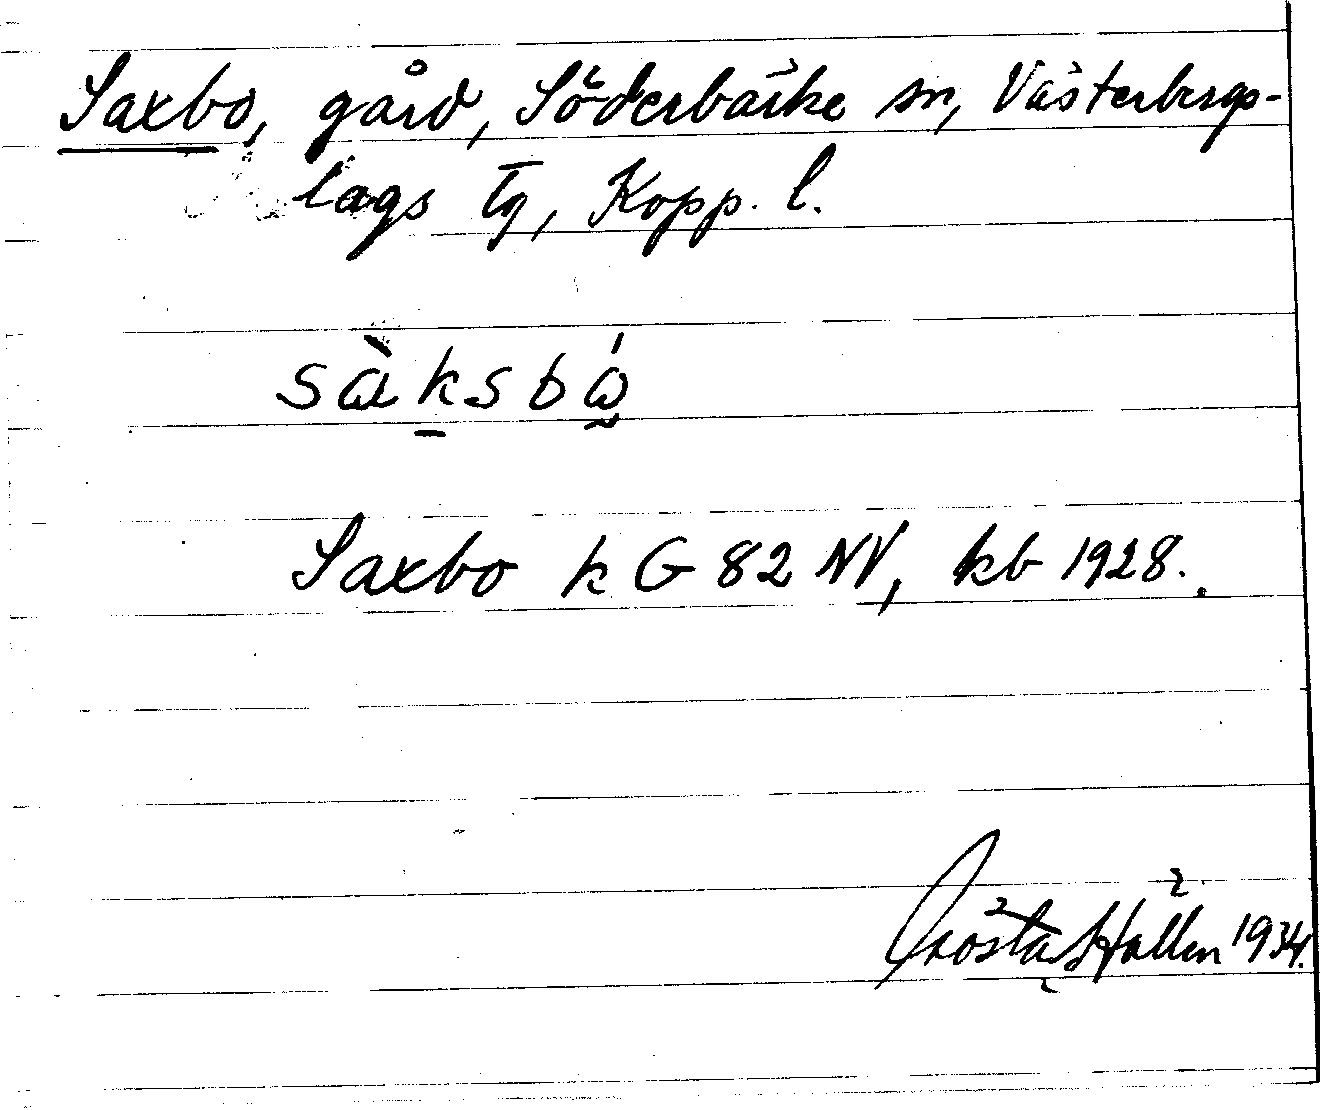 Saxbo, gård, Söderbärke sn, Västerbergs-
lags tg, Kopp. l.
sàksbó̰
Saxbo k G 82 NV, kb 1928.
Gösta Hallén 1934.